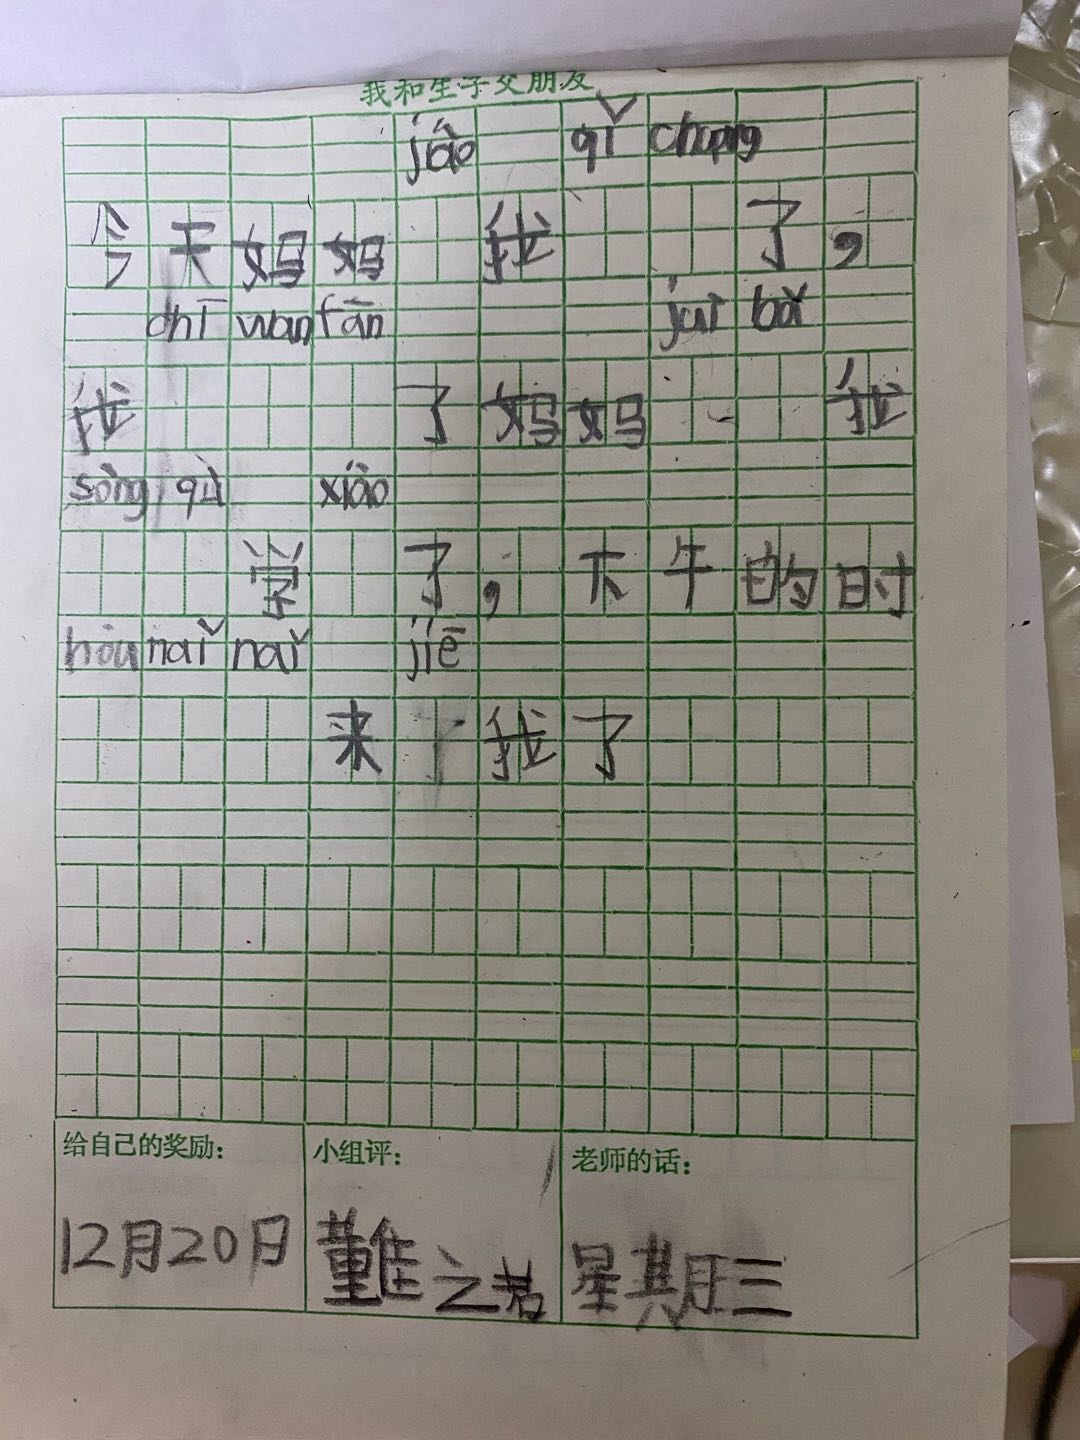 我和生字交朋友
jiào qǐ chuang
今天妈妈 我 了，
chī wan fàn jui bǎ
我 了妈妈 我
sòng qù xiào
学 了，下午的时
hòu naǐ naǐ jiē
来 我了
给自己的奖励： 小组评： 老师的话：
12月20日 之 星期三